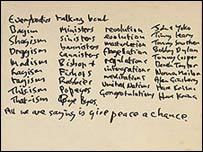 Everybodies talking bout
Bagism Ministers revolution John + Yoko
Shagism Sinisters evolution Timmy Leary
Dragism Bannisters masturbation Tommy Smothers
Madism cannisters flagellation Bobby Dylan
Ragism Bishops regulations Tommy Cooper
Tagism Fishops integrations Derek Taylor
Thisism Rabbis meditations Norman Mailer
That-ism Popeyes United Nations Alan Ginsberg
Bye Byes Congratulations Hare Krishna
Hare Krishna
All we are saying is give peace a chance.